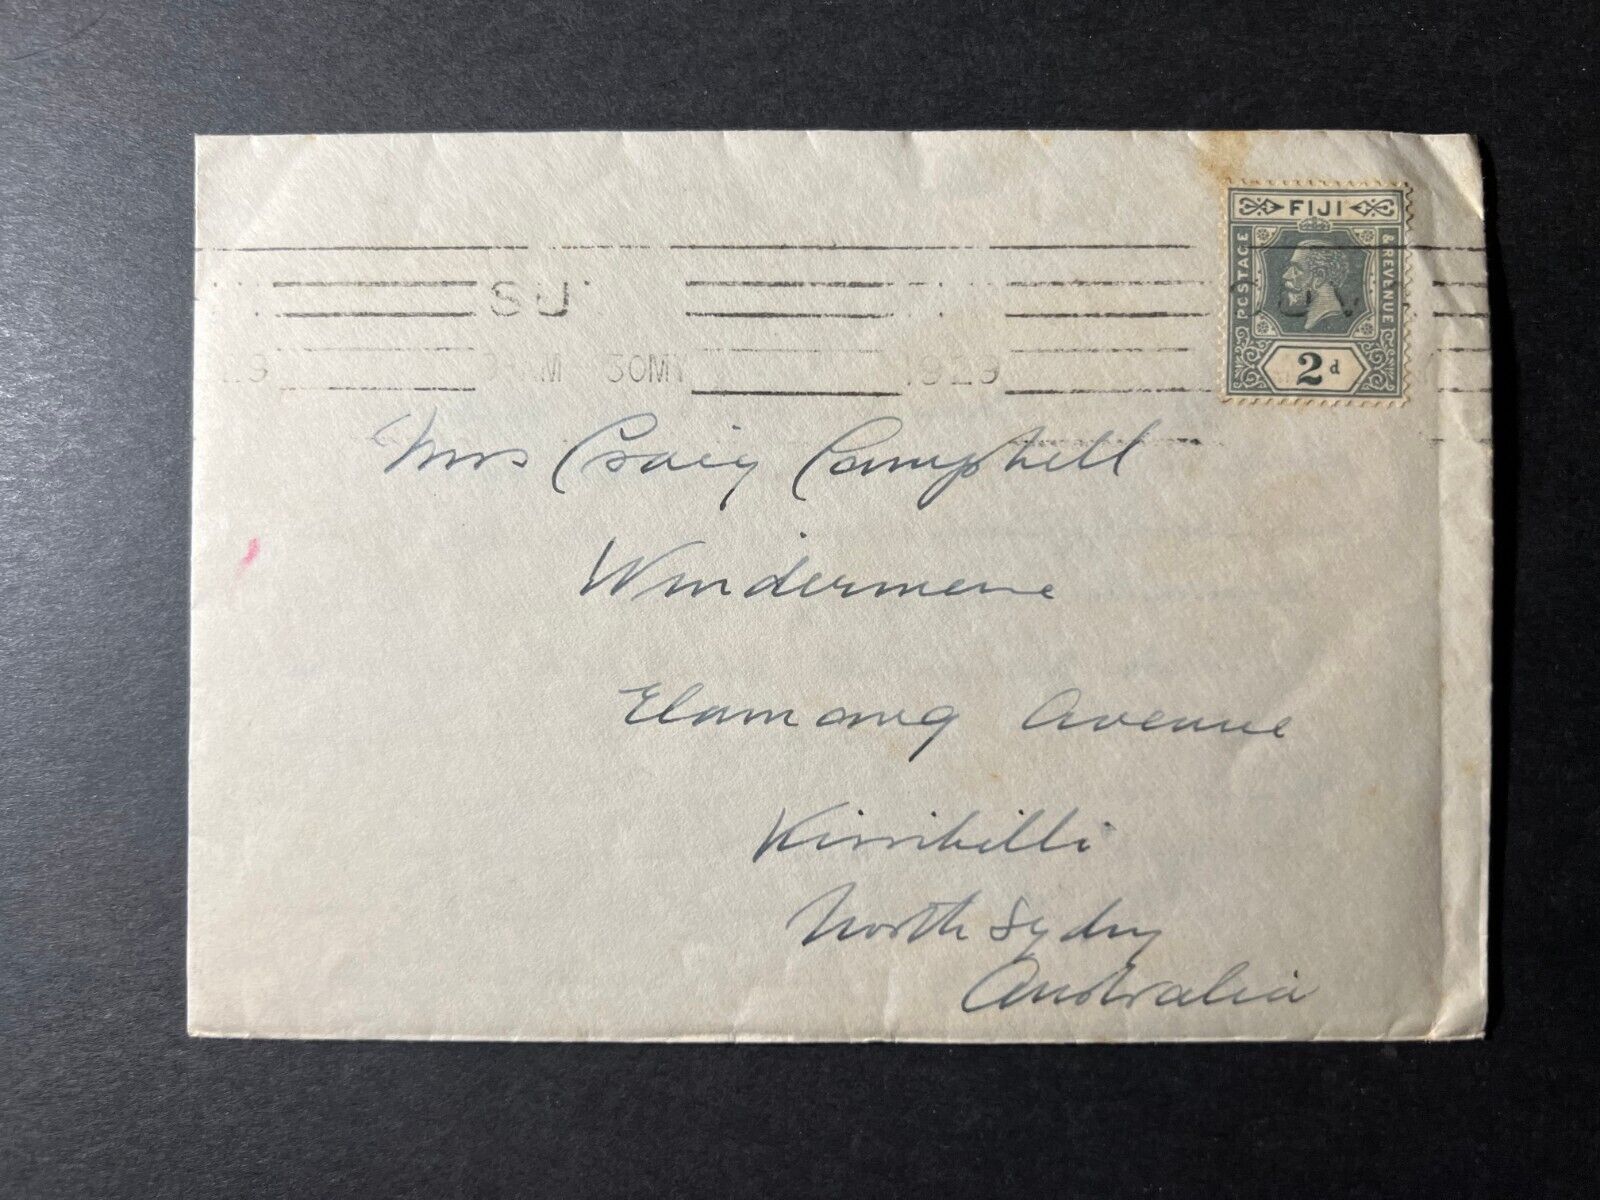 FIJI
POSTAGE & REVENUE
2d
SU
SUV
29 AM 30MY 1929
Mrs Craig Campbell
Windermere
Elamang Avenue
Kirribilli
North Sydny
Australia